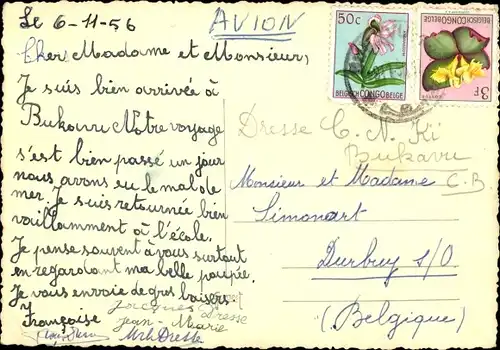 Le 6-11-56
AVION
Chers Madame et Monsieur,
Je suis bien arrivée à
Bukavu Notre voyage
s'est bien passé un jour
nous avons eu le mal de
mer. Je suis retournée bien
vaillamment à l'école.
Je pense souvent à vous surtout
en regardant ma belle poupée.
Je vous envoie de gros baisers.
Françoise
Jacques Dresse
jean-Marie
Dresse
50c
BELGISCH CONGO BELGE
3F
BELGISCH CONGO BELGE
Dresse C.N.Ki
Bukavu
Monsieur et Madame C.B
Simonart
Durbuy s/O
(Belgique)